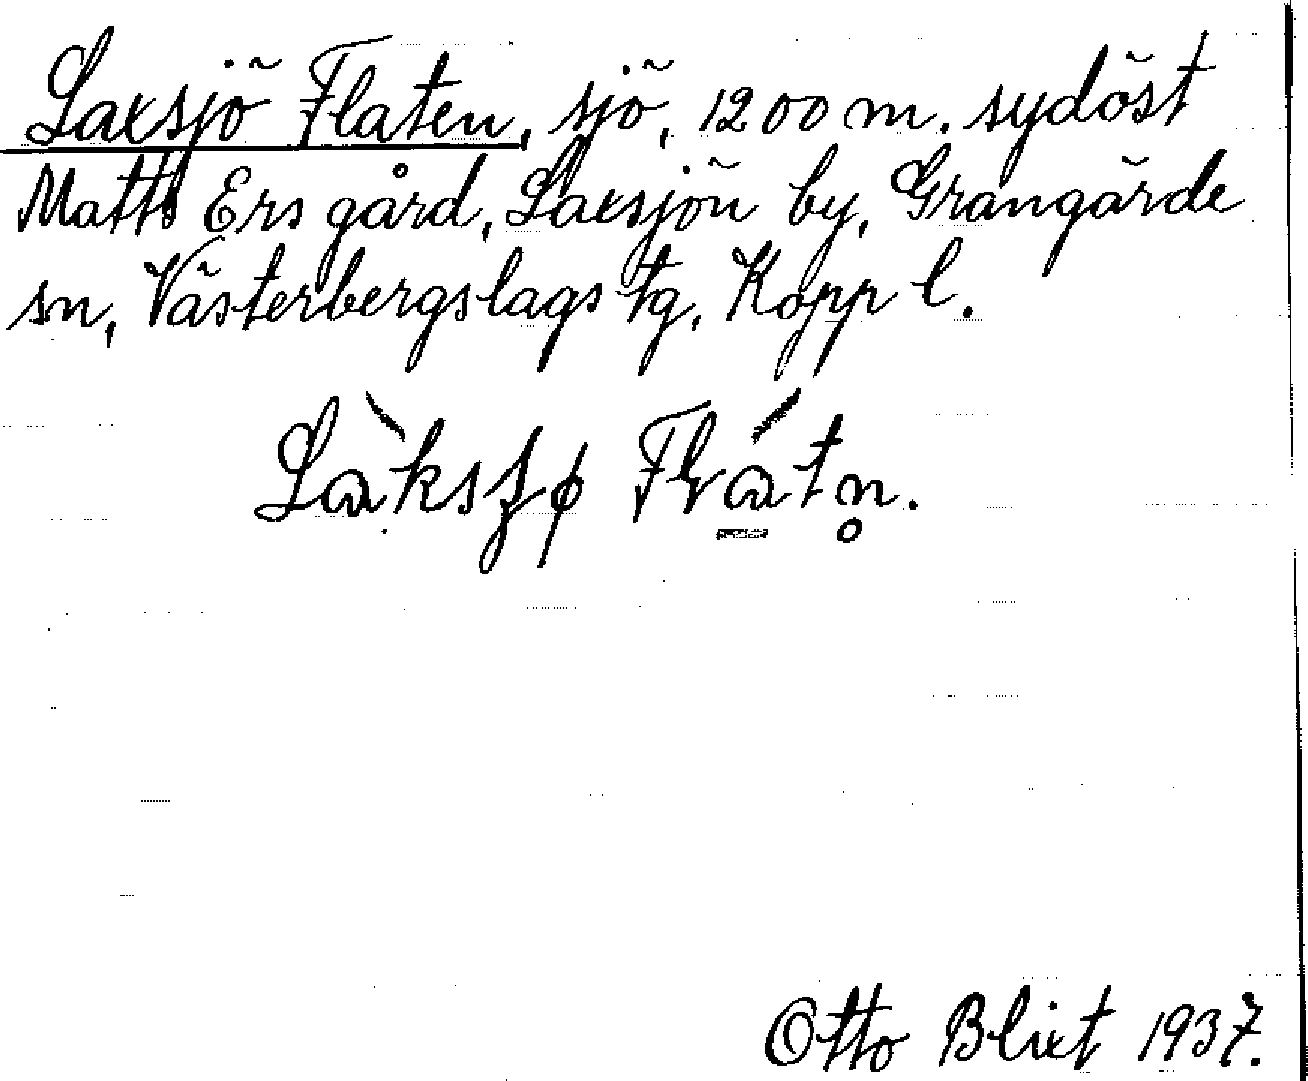 Laxsjö Flaten, sjö, 1200 m. sydöst
Matts Ers gård, Laxsjön by, Grangärde
sn, Västerbergslags tg, Kopp l.
Làksʃø Flɑ́tn̥.
Otto Blixt 1937.